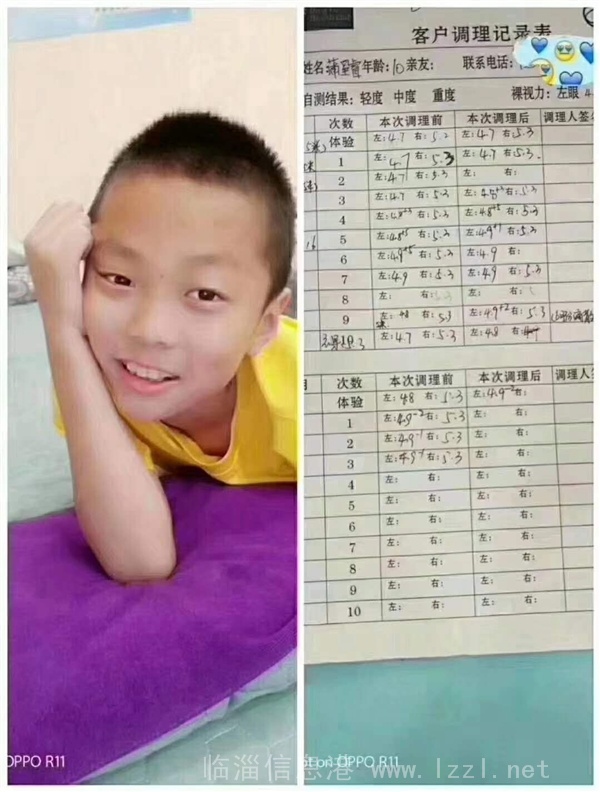 客户调理记录表
年龄:10 亲友: 联系电话:
自测结果: 轻度 中度 重度 裸视力: 左眼 4
次数 本次调理前 本次调理后 调理人签
体验 左:4.7 右:5.2 左:4.7 右:5.3
1 左:4.7 右:5.3 左:4.7 右:5.3.
2 左:4.7 右:5.3 左: 右:
3 左:4.7 右:5.3 左:4.8⁺³ 右:5.3
4 左:4.8⁺³ 右:5.3 左:4.8⁺² 右:5.3
16 5 左:4.8⁺⁵ 右:5.3 左:4.9⁺¹ 右:5.3
6 左:4.9⁺⁵ 右:5.3 左:4.9 右:
7 左:4.9 右:5.3 左:4.9 右:5.3
8 左: 右: 左: 右:
9 左:4.8 右:5.3 左:4.9⁺² 右:5.3
10 左:4.7 右:5.3 左:4.8 右:
次数 本次调理前 本次调理后 调理人签
体验 左:4.8 右:5.3 左:4.9⁻² 右:
1 左:4.9⁻² 右:5.3 左: 右:
2 左:4.9⁻¹ 右:5.3 左: 右:
3 左:4.9⁻¹ 右:5.3 左: 右:
4 左: 右: 左: 右:
5 左: 右: 左: 右:
6 左: 右: 左: 右:
7 左: 右: 左: 右:
8 左: 右: 左: 右:
9 左: 右: 左: 右:
10 左: 右: 左: 右:
OPPO R11
ot on OPPO R11
临淄信息港 www.lzzl.net